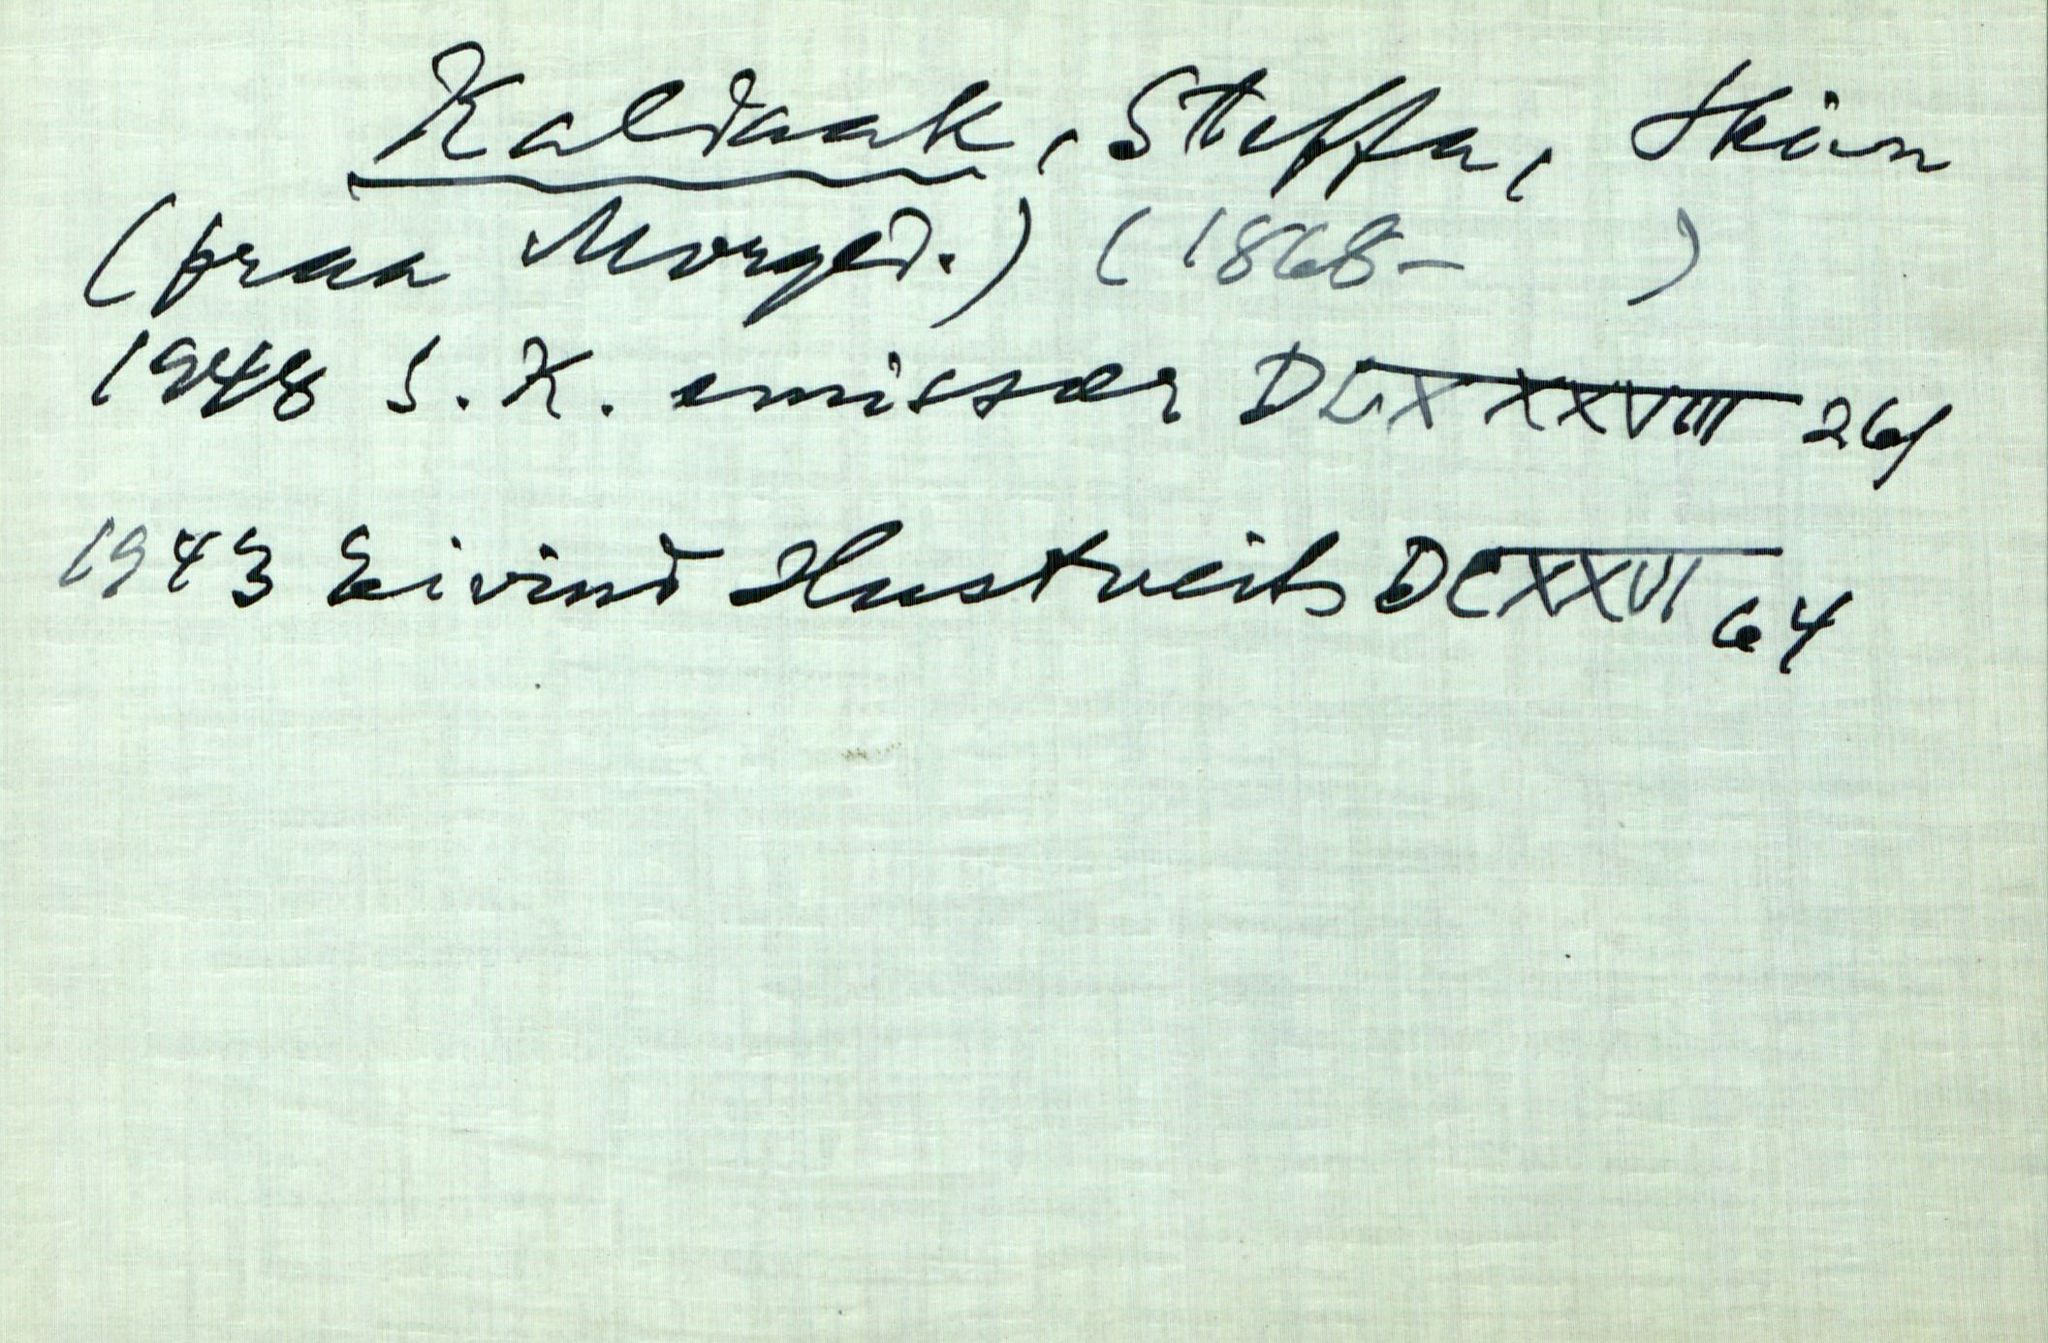 Kaldaak, Steffa, Skien
(fraa Morged.) (1868- )
1948 S. K. emissær DCXXXXVIII 261
1943 Eivind Hustveits DCXXVI 64